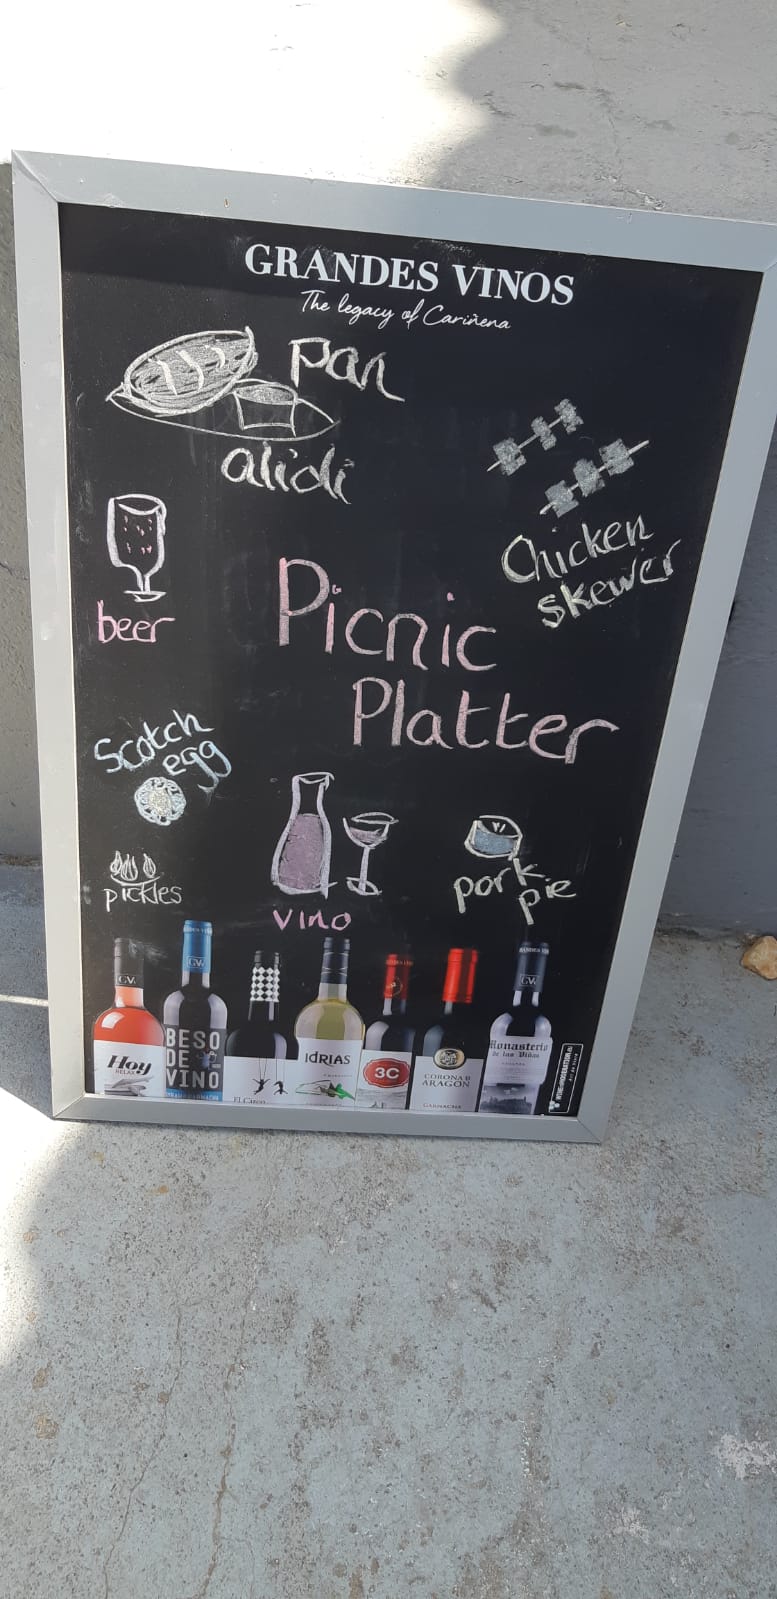 GRANDES VINOS
The legacy of Cariñena
pan
alioli
Chicken
skewer
beer
Picnic
Platter
Scotch
egg
pickles
vino
pork
pie
GV
Hoy
RELAX
GV
BESO
DE
VINO
El Circo
IDRIAS
3C
CORONA DE
ARAGÓN
GARNACHA
GV
Monasterio
de las Viñas